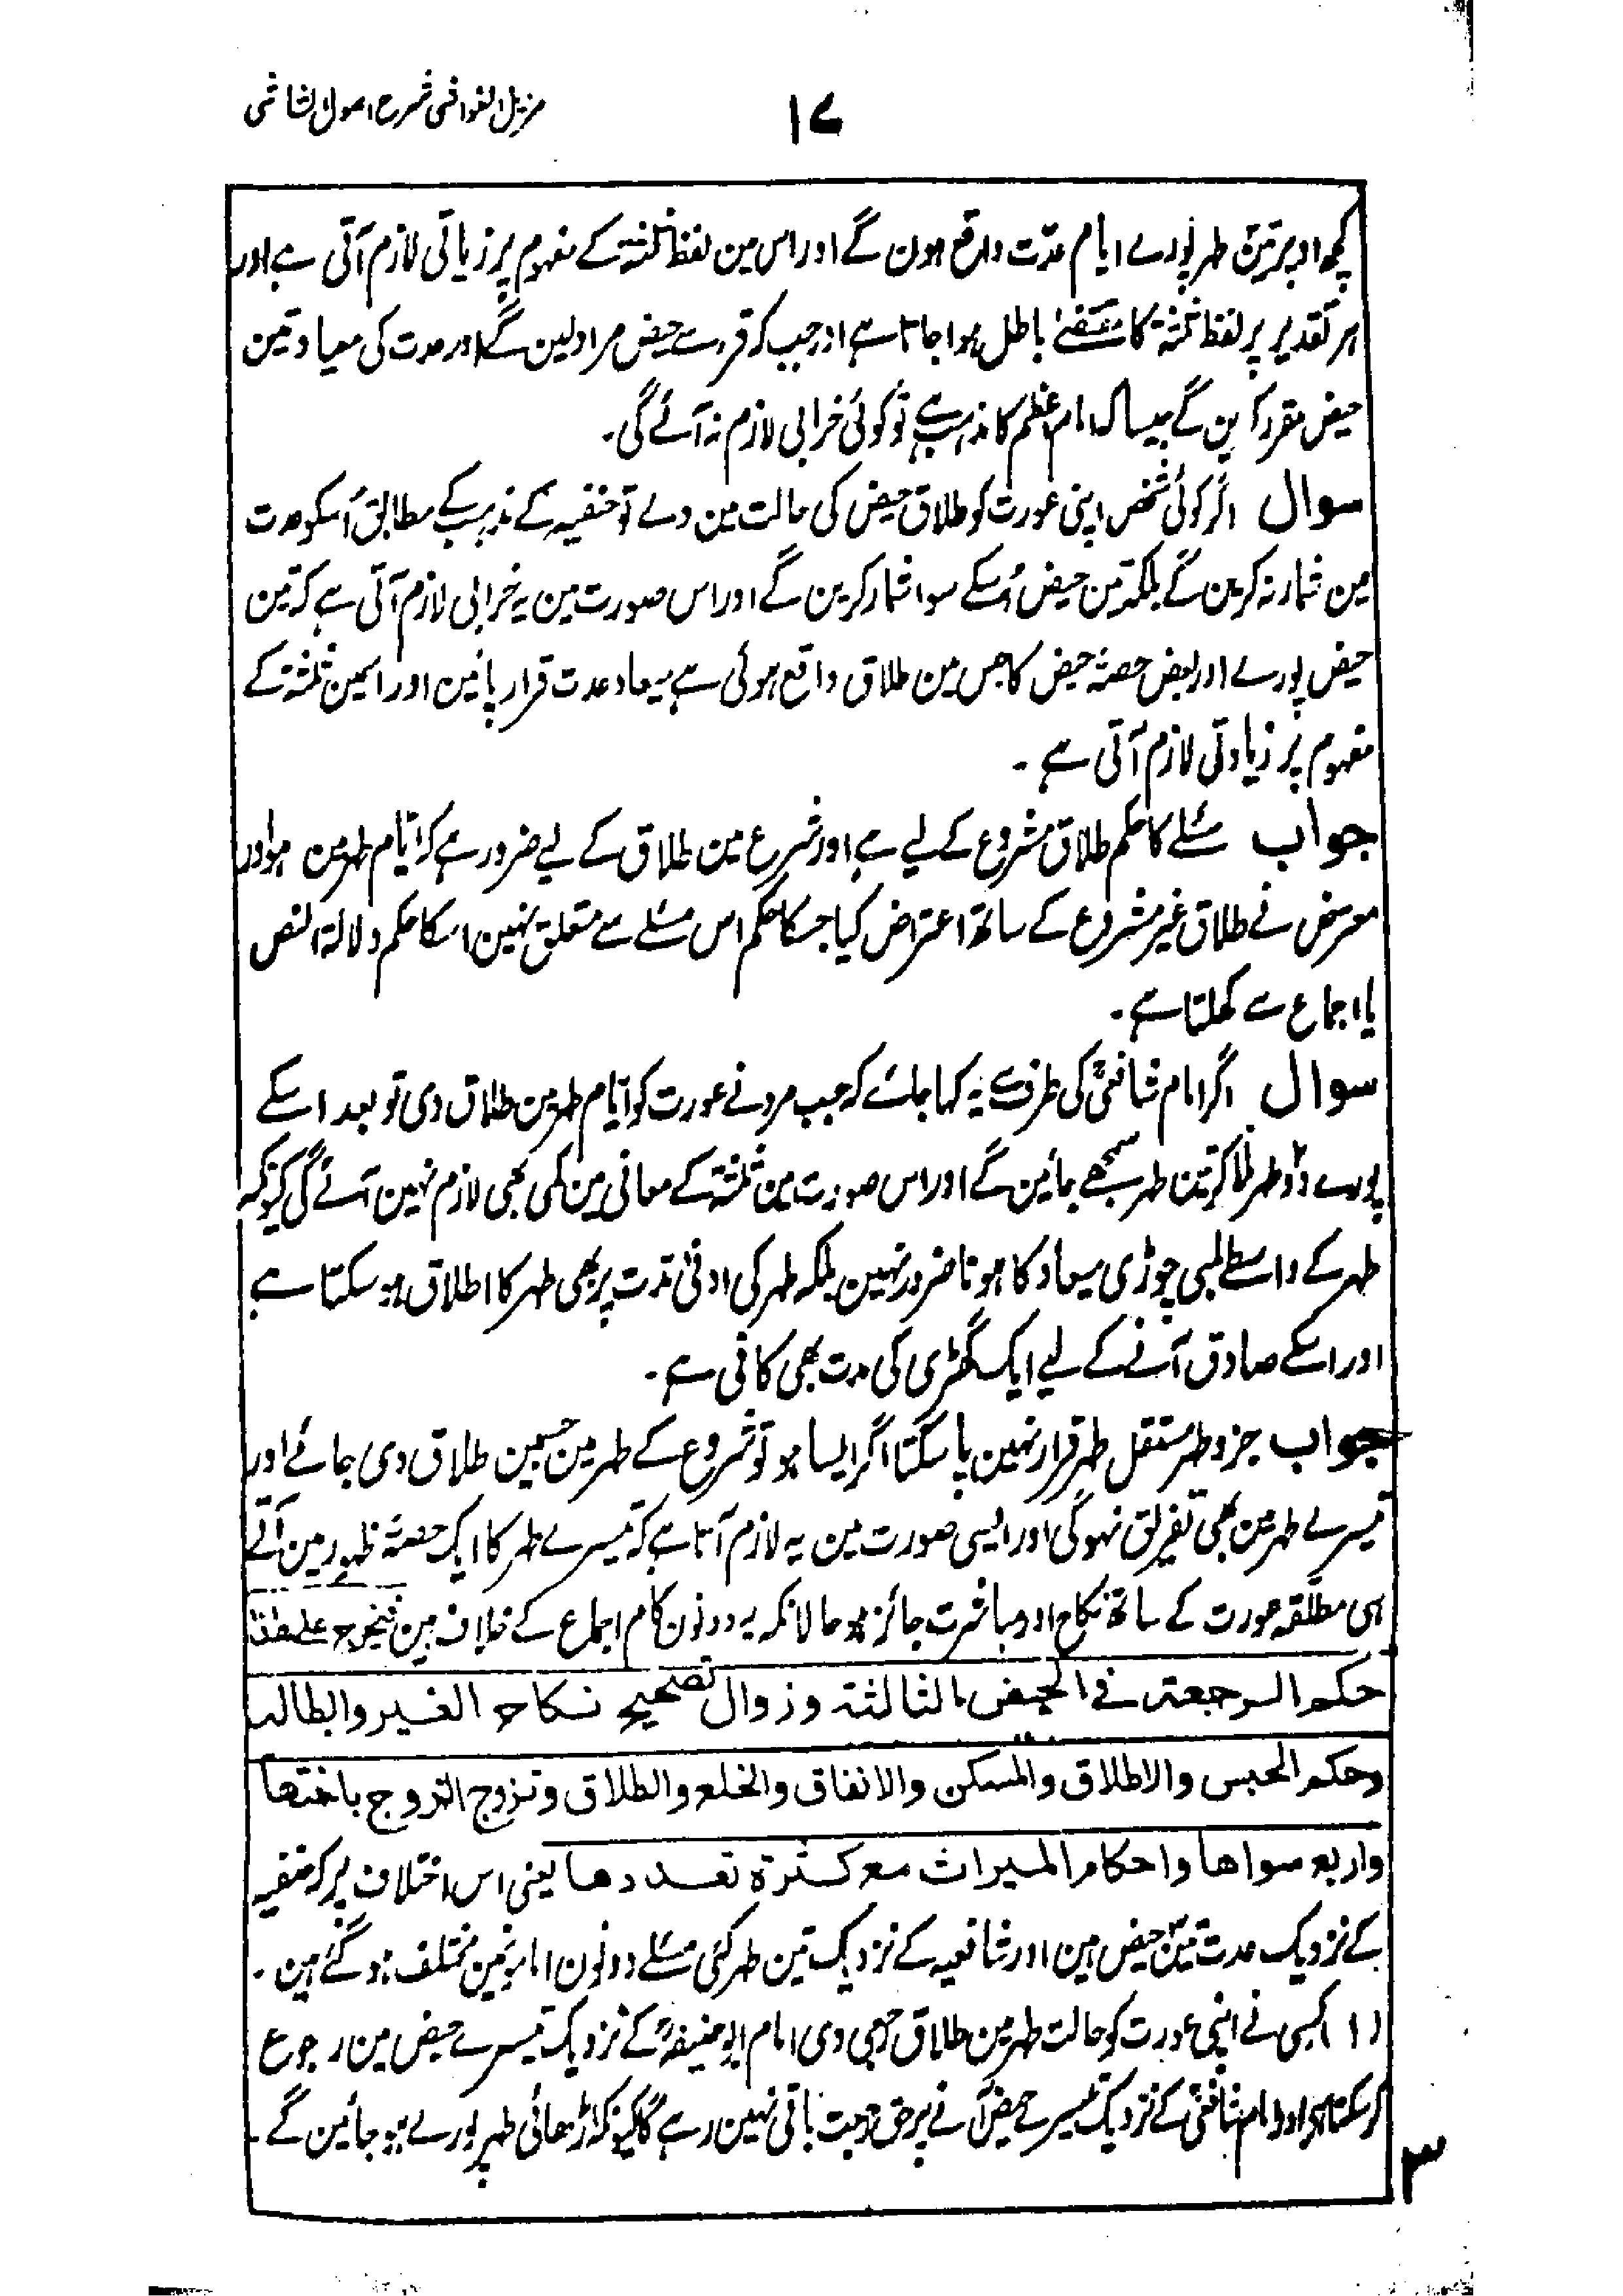 مزیل الغواشی شرح اصول الشاشی
۱۷
کچھ اوپر تین طہر پورے ایام عدّت واقع ہون گے اور اس مین لفظ ثلٰثۃ کے مفہوم پر زیاتی لازم آتی ہے اور
ہر تقدیر پر لفظ ثلٰثۃ کا مقتضیٰ باطل ہوا جاتا ہے اور جب کہ قرء سے حیض مراد لین گے اور عدت کی میعاد تین
حیض مقرر کرین گے جیسا کہ امام اعظم کا مذہب ہے تو کوئی خرابی لازم نہ آئے گی۔
سوال اگر کوئی شخص اپنی عورت کو طلاق حیض کی حالت مین دے تو حنفیہ کے مذہب کے مطابق اُسکو عدت
مین شمار نہ کرین گے بلکہ تین حیض اُسکے سوا شمار کرین گے اور اس صورت مین یہ خرابی لازم آتی ہے کہ تین
حیض پورے اور بعض حصۂ حیض کا جس مین طلاق واقع ہوئی ہے میعاد عدت قرار پائین اور اسمین ثلٰثۃ کے
مفہوم پر زیادتی لازم آتی ہے۔
جواب مسئلے کا حکم طلاق مشروع کے لیے ہے اور شرع مین طلاق کے لیے ضرور ہے کہ ایّام طہر مین ہو اور
معترض نے طلاق غیر مشروع کے ساتھ اعتراض کیا جسکا حکم اس مسئلے سے متعلق نہین اسکا حکم دلالۃ النص
یا اجماع سے کھلتا ہے۔
سوال اگر امام شافعیؒ کی طرف سے یہ کہا جائے کہ جب مرد نے عورت کو ایّام طہر مین طلاق دی تو بعد اسکے
پورے دو ۲ طہر ملا کر تین طہر سمجھے جائین گے اور اس صورت مین ثلٰثۃ کے معانی مین کمی بھی لازم نہین آئے گی کیونکہ
طہر کے واسطے لمبی چوڑی میعاد کا ہونا ضرور نہین بلکہ طہر کی ادنیٰ مدت پر بھی طہر کا اطلاق ہو سکتا ہے
اور اسکے صادق آنے کے لیے ایک گھڑی کی مدت بھی کافی ہے۔
جواب جزو طہر مستقل طہر قرار نہین پا سکتا اگر ایسا ہو تو شروع کے طہر مین جسمین طلاق دی جائے اور
تیسرے طہر مین بھی تفریق نہوگی اور ایسی صورت مین یہ لازم آتا ہے کہ تیسرے طہر کا ایک حصّہ ظہور مین آتے
ہی مطلّقہ عورت کے ساتھ نکاح اور مباشرت جائز ہو حالانکہ یہ دونون کام اجماع کے خلاف ہین فیخرج علی هذا
حکم الرجعة فی الحیض الثالثة وزوال تصحیح نکاح الغیر وابطاله
وحکم الحبس والاطلاق والمسکن والانفاق والخلع والطلاق وتزوج الزوج باختها
واربع سواها واحکام المیراث مع کثرة تعددها یعنی اس اختلاف پر کہ حنفیہ
کے نزدیک عدت تین ۳ حیض ہین اور شافعیہ کے نزدیک تین طہر کئی مسئلے دونون امامونمین مختلف ہو گئے ہین۔
(۱) کسی نے اپنی عورت کو حالت طہر مین طلاق رجعی دی امام ابو حنیفہؒ کے نزدیک تیسرے حیض مین رجوع
کر سکتا ہے اور امام شافعیؒ کے نزدیک تیسرے حیض آنے پر حق رجعت باقی نہین رہے گا کیونکہ اڑھائی طہر پورے ہو جائین گے۔
۳